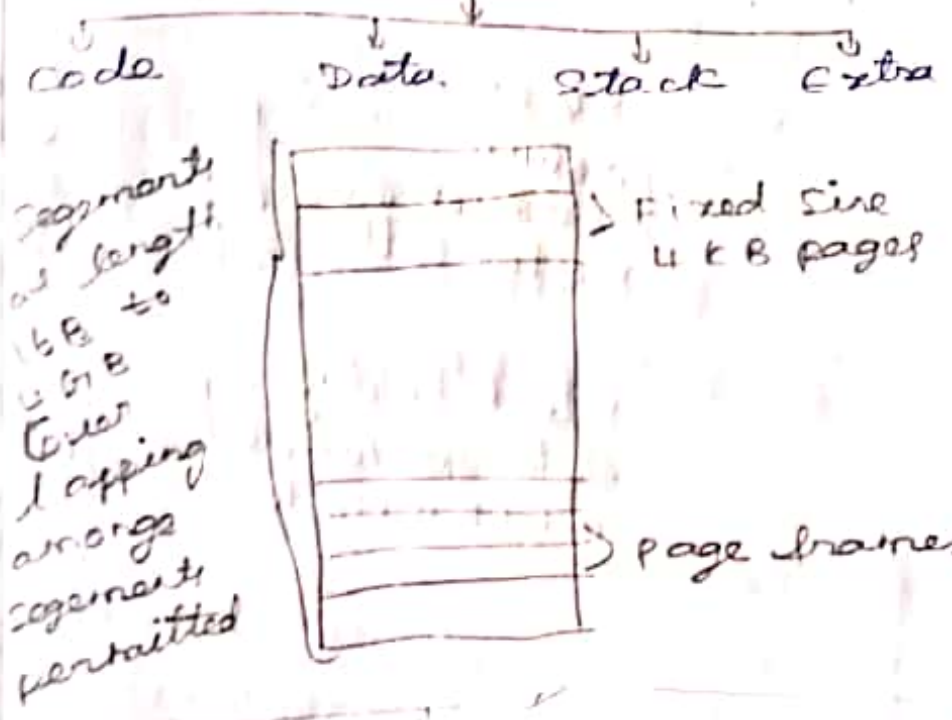 Code Data Stack Extra
Segments
of length
1 B to
4 GB
(over
lapping
amongs
segements
permitted
Fixed Size
4 KB pages
page frame